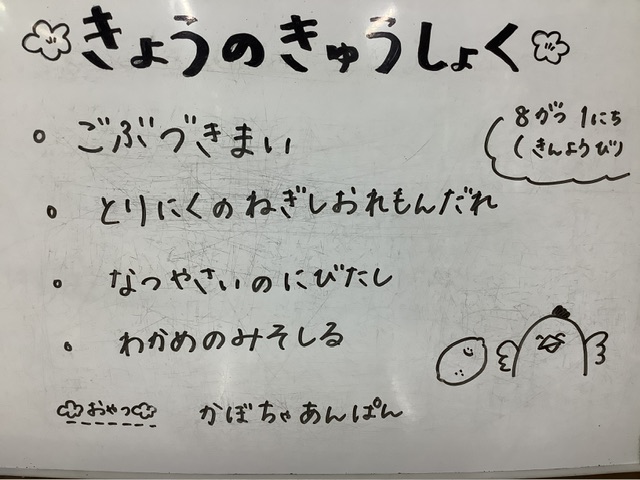 きょうのきゅうしょく
8がつ 1にち
(きんようび)
ごぶづきまい
とりにくのねぎしおれもんだれ
なつやさいのにびたし
わかめのみそしる
おやつ かぼちゃあんぱん